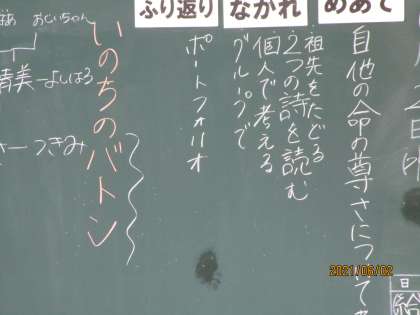 めあて
自他の命の尊さについて
ながれ
祖先をたどる
2つの詩を読む
個人で考える
グループで
ふり返り
ポートフォリオ
いのちのバトン
おじいちゃん
清美ーよしはる
つきみ
2021/06/02
日
給